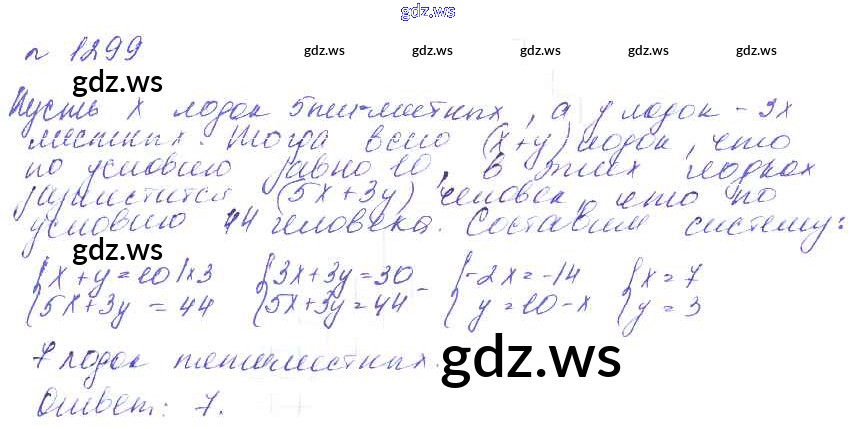 gdz.ws
№ 1299
gdz.ws gdz.ws gdz.ws gdz.ws gdz.ws
Пусть х лодок 5пи-местных, а у лодок - 3х
местных. Тогда всего (х+у) лодок, что
по условию равно 10, в этих лодках
разместится (5х+3у) человек, что по
условию 44 человека. Составим систему:
gdz.ws
{х+у=10 |х3 {3х+3у=30 - {-2х=-14 {х=7
{5х+3у=44 {5х+3у=44 {у=10-х {у=3
7 лодок пятиместных.
gdz.ws
Ответ: 7.